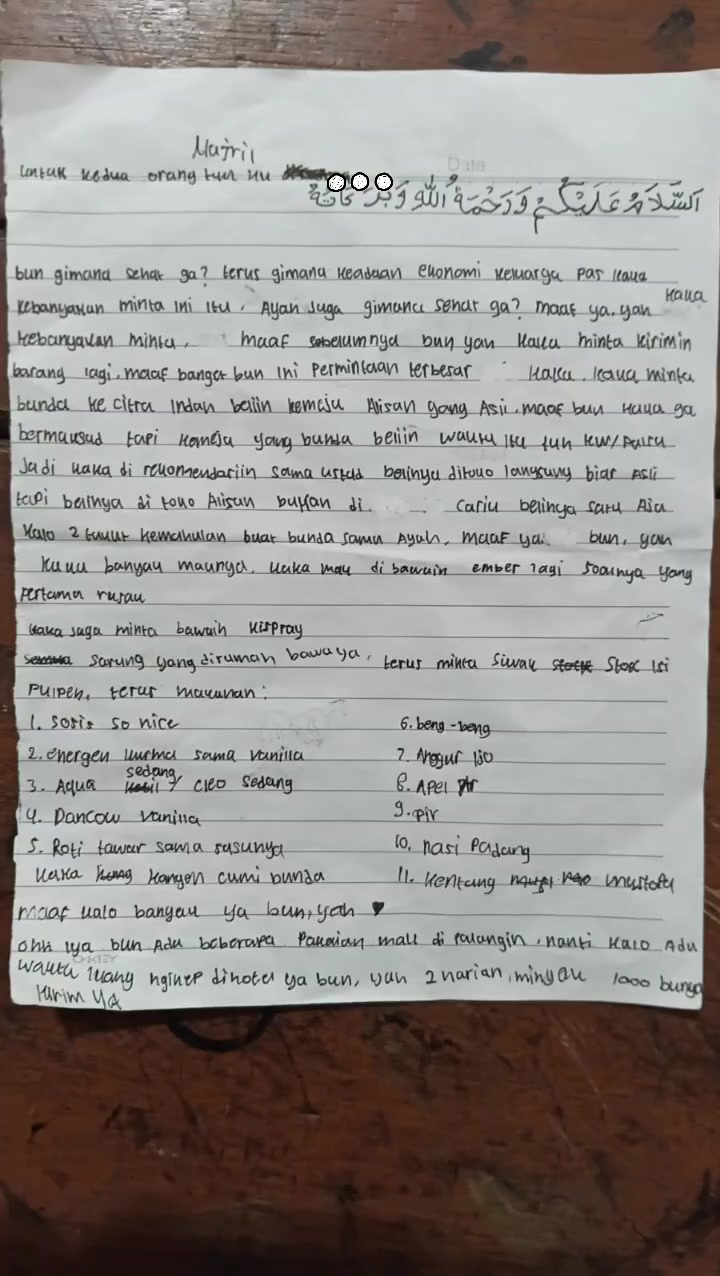 Majril
untuk kedua orang tua ku
Date
السَّلَامُ عَلَيْكُمْ وَرَحْمَةُ اللهِ وَبَرَكَاتُهُ
bun gimana sehat ga? terus gimana keadaan ekonomi keluarga pas kaka
kebanyakan minta ini itu. Ayah juga gimana sehat ga? maaf ya. yah kaka
kebanyakan minta. maaf sebelumnya bun yah kaka minta kirimin
barang lagi. maaf banget bun ini Permintaan terbesar kaka. kaka minta
bunda ke citra indah beliin kemeja Alisan yang Asli. maaf bun kaka ga
bermaksud tapi kemeja yang bunda beliin waktu itu tuh KW/Palsu
Jadi kaka di rekomendariin sama ustad belinya ditoko langsung biar Asli
tapi belinya di toko Alisan bukan di. cariu belinya satu Aja
kalo 2 takut kemahalan buat bunda sama Ayah. maaf ya bun, yah
kaka banyak maunya. kaka mau di bawain ember lagi soalnya yang
pertama rusak
kaka juga minta bawain kispray
sarung yang dirumah bawa ya, terus minta siwak Stok isi
Pulpen. terus makanan :
1. sosis so nice
2. energen kurma sama vanilla
3. Aqua sedang / cleo sedang
4. Dancow vanilla
5. Roti tawar sama susunya
kaka kangen cumi bunda
6. beng-beng
7. Anggur ijo
8. APel
9. Pir
10. nasi Padang
11. kentang mustofa
maaf kalo banyak ya bun, yah ♥
ohh iya bun Ada beberapa Pakaian kaka di malangin. nanti kalo Ada
waktu luang nginep dihotel ya bun, yah 2 harian. minyak 1000 bunga
kirim ya